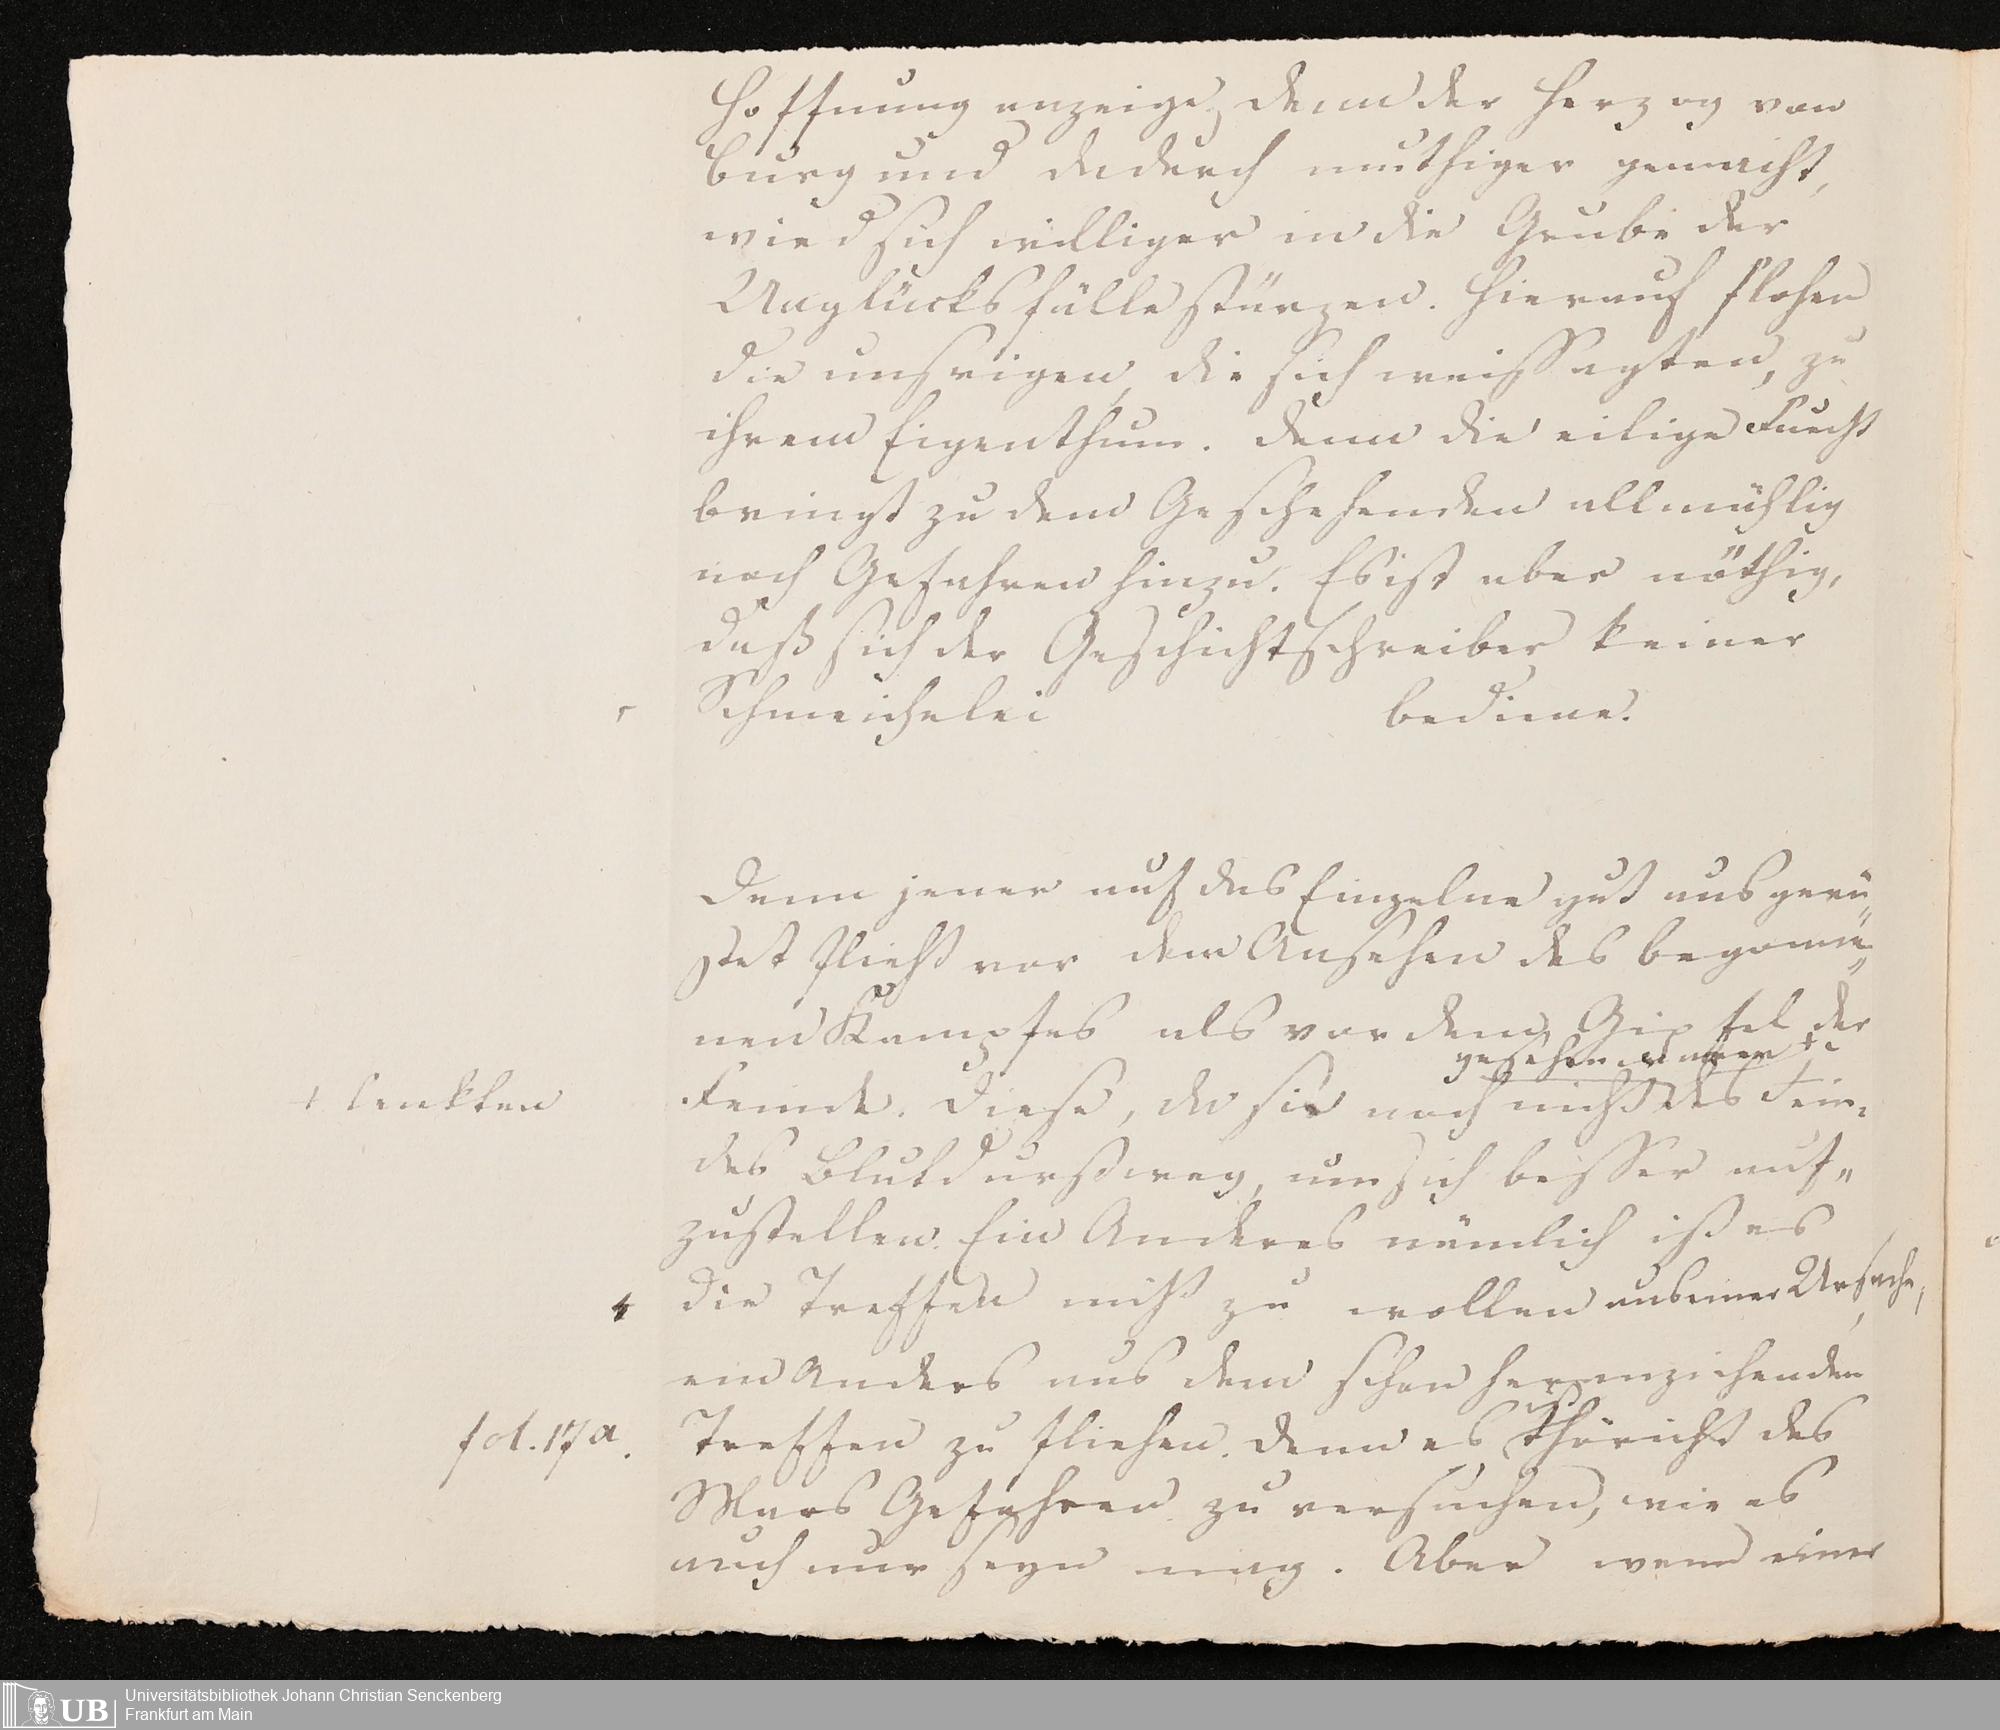 Hoffnung anzeige, denn der Herzog von
Burgund dadurch muthiger gemacht,
wird sich williger in die Grube der
Unglücksfälle stürzen. Hierauf flohen
die unsrigen, die sich weissagten, zu
ihrem Eigenthum. Denn die eilige Furcht
bringt zu dem Geschehenden allmählig
noch Gefahren hinzu. Es ist aber nöthig,
daß sich der Geschichtschreiber keiner
Schmeichelei bediene.
Denn jener auf das Einzelne gut ausgerü„
stet flieht vor dem Ansehen des begonne„
nen Kampfes als vor dem Gipfel der
gesehen
+ lenkten
Feinde. Diese, da sie noch nicht des Fein„
des Blutdurst weg, um sich besser auf„
zustellen. Ein Anderes nämlich ist es
die Treffen nicht zu wollen aus einer Ursache,
ein Anders aus dem schon heranziehenden
ist
fol. 17a.
Treffen zu fliehen. Denn es thöricht des
Mars Gefahren zu versuchen, wie es
auch nur seyn mag. Aber wenn einer
UB
Universitätsbibliothek Johann Christian Senckenberg
Frankfurt am Main